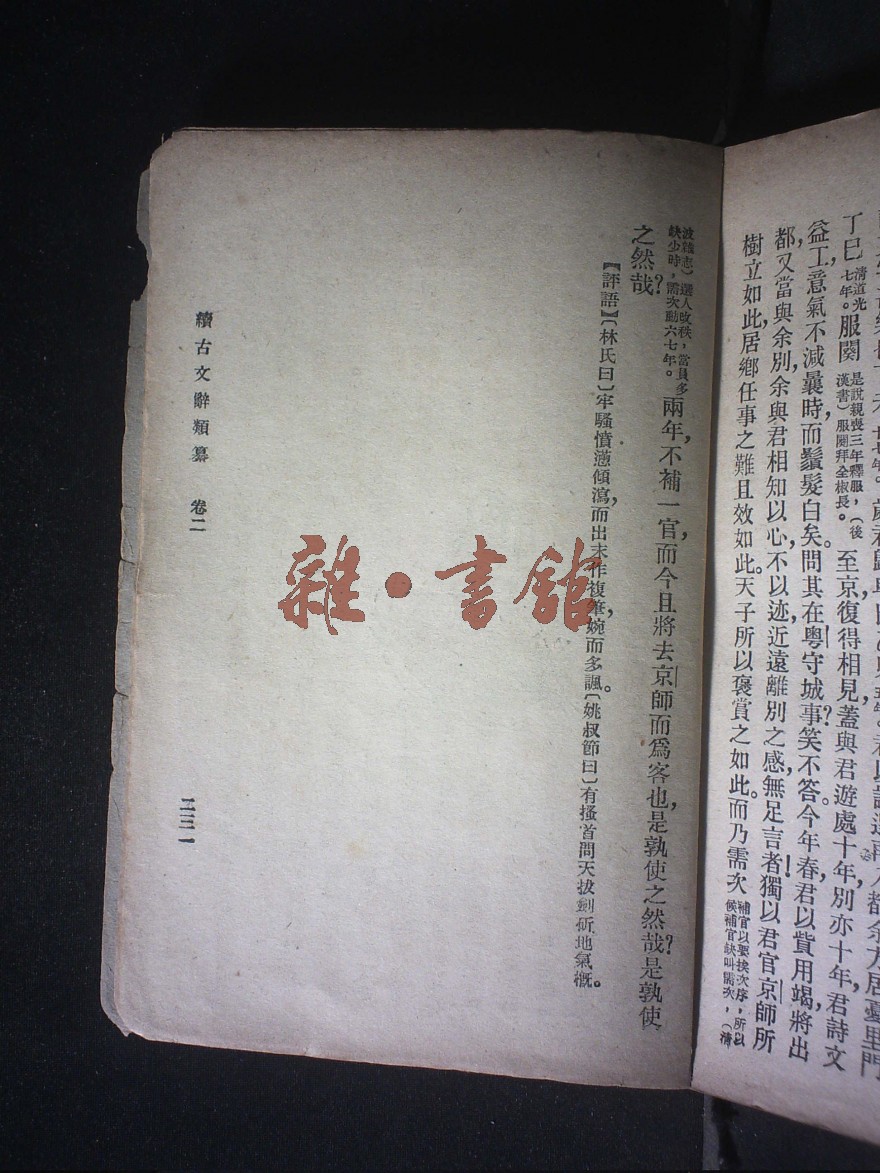 丁巳清道光七年。服闋是說親喪三年釋服，（後漢書）服闋拜全椒長。至京，復得相見，蓋與君遊處十年，別亦十年，君詩文
益工，意氣不減曩時，而鬚髮白矣。問其在粵守城事？笑不答。今年春，君以貲用竭，將出
都，又當與余別，余與君相知以心，不以迹，近遠離別之感，無足言者！獨以君官京師，所
樹立如此，居鄉任事之難且效如此。天子所以褒賞之如此。而乃需次補官以要挨次序，所以候補官缺叫需次，（清
波雜志）選人改秩，當員多缺少時，需次動六七年。兩年，不補一官，而今且將去京師而爲客也，是孰使之然哉？是孰使
之然哉？
【評語】〔林氏曰〕牢騷憤懣，傾瀉而出，末作複筆，婉而多諷。〔姚叔節曰〕有搔首問天拔劍斫地氣概。
續古文辭類纂　卷二
二三一
雜·書館